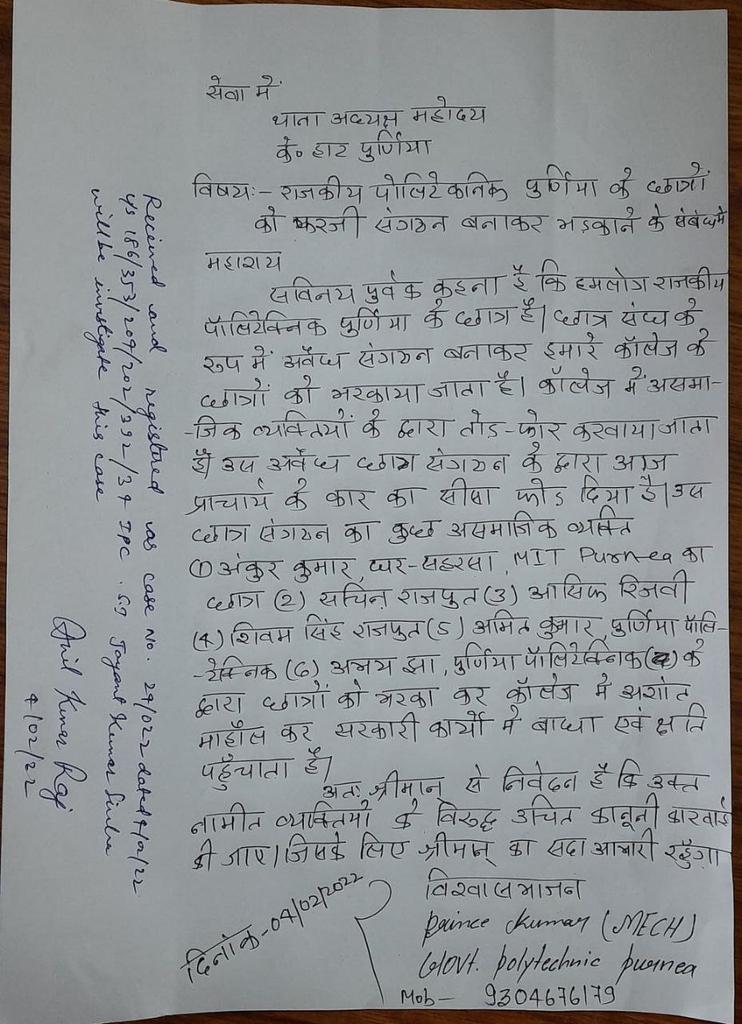 सेवा में
थाना अध्यक्ष महोदय
के॰ हाट पुर्णिया
विषय:- राजकीय पोलिटेकनिक पुर्णिया के छात्रों
को फरजी संगठन बनाकर भड़काने के संबंध मे
महाशय
सविनय पुर्वक कहना है कि हमलोग राजकीय
पॉलिटेक्निक पुर्णिया के छात्र है। छात्र संघ के
रूप में अवैध संगठन बनाकर हमारे कॉलेज के
छात्रों को भरकाया जाता है। कॉलेज में असमा-
-जिक व्यक्तियों के द्वारा तोड-फोर करवाया जाता
है। उस अवैध छात्र संगठन के द्वारा आज
प्राचार्य के कार का सीसा फोड दिया है। उस
छात्र संगठन का कुछ असमाजिक व्यक्ति
(1) अंकुर कुमार, घर-सहरसा, MIT Purnea का
छात्र (2) सचिन राजपुत (3) आसिफ रिजवी
(4) शिवम सिंह राजपुत (5) अमित कुमार, पुर्णिया पॉलि-
-टेक्निक (6) अभय झा, पुर्णिया पॉलिटेक्निक के
द्वारा छात्रों को भरका कर कॉलेज मे अशांत
माहौल कर सरकारी कार्यो मे बाधा एवं क्षति
पहुँचाता है।
अतः श्रीमान् से निवेदन है कि उक्त
नामीत व्यक्तियों के विरुद्ध उचित कानूनी कारवाई
की जाए। जिसके लिए श्रीमान् का सदा आभारी रहुँगा
विश्वासभाजन
Prince Kumar (MECH)
Govt. polytechnic purnea
Mob- 9304676179
दिनांक-04/02/2022
Received and registered as case No. 29/022 dated 4/02/22
u/s 186/353/209/202/392/34 IPC. S.I Jayant Kumar Sinha
will be investigate this case
Anil Kumar Raj
4/02/22